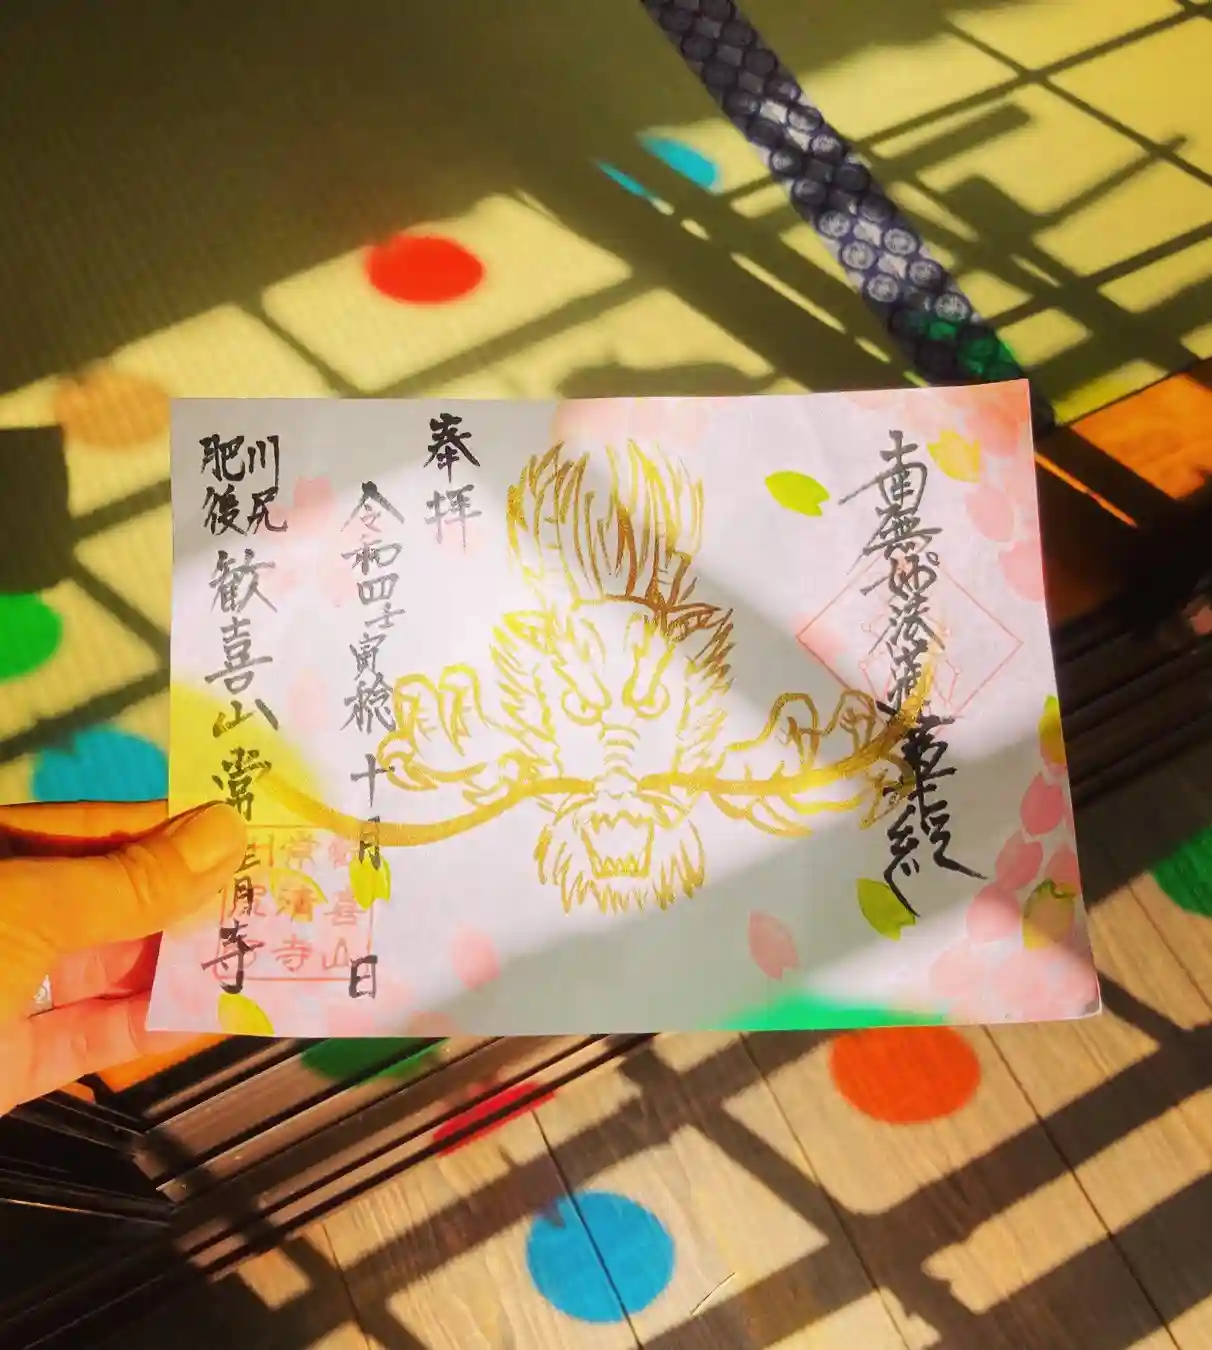 南無妙法蓮華経
奉拝
令和四壬寅稔十月 日
肥後川尻
歓喜山常清寺
歓喜山
常清寺
川尻